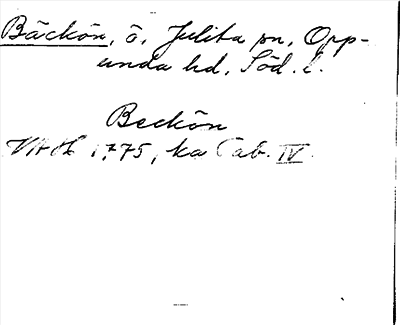 Bäckön, ö, Julita sn, Opp-
unda hd, Söd. l.
Beckön
VAH 1775, ka Tab. IV.